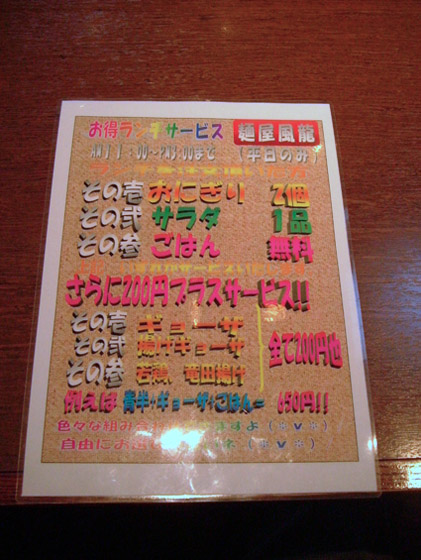 お得ランチサービス 麺屋風龍
AM11:00~PM5:00まで (平日のみ)
その壱 おにぎり 2個
その弐 サラダ 1品
その参 ごはん 無料
さらに200円プラスサービス!!
その壱 ギョーザ
その弐 揚げギョーザ 全て200円也
その参 若鶏 竜田揚げ
例えば 青半+ギョーザ+ごはん= 650円!!
色々な組み合
自由にお